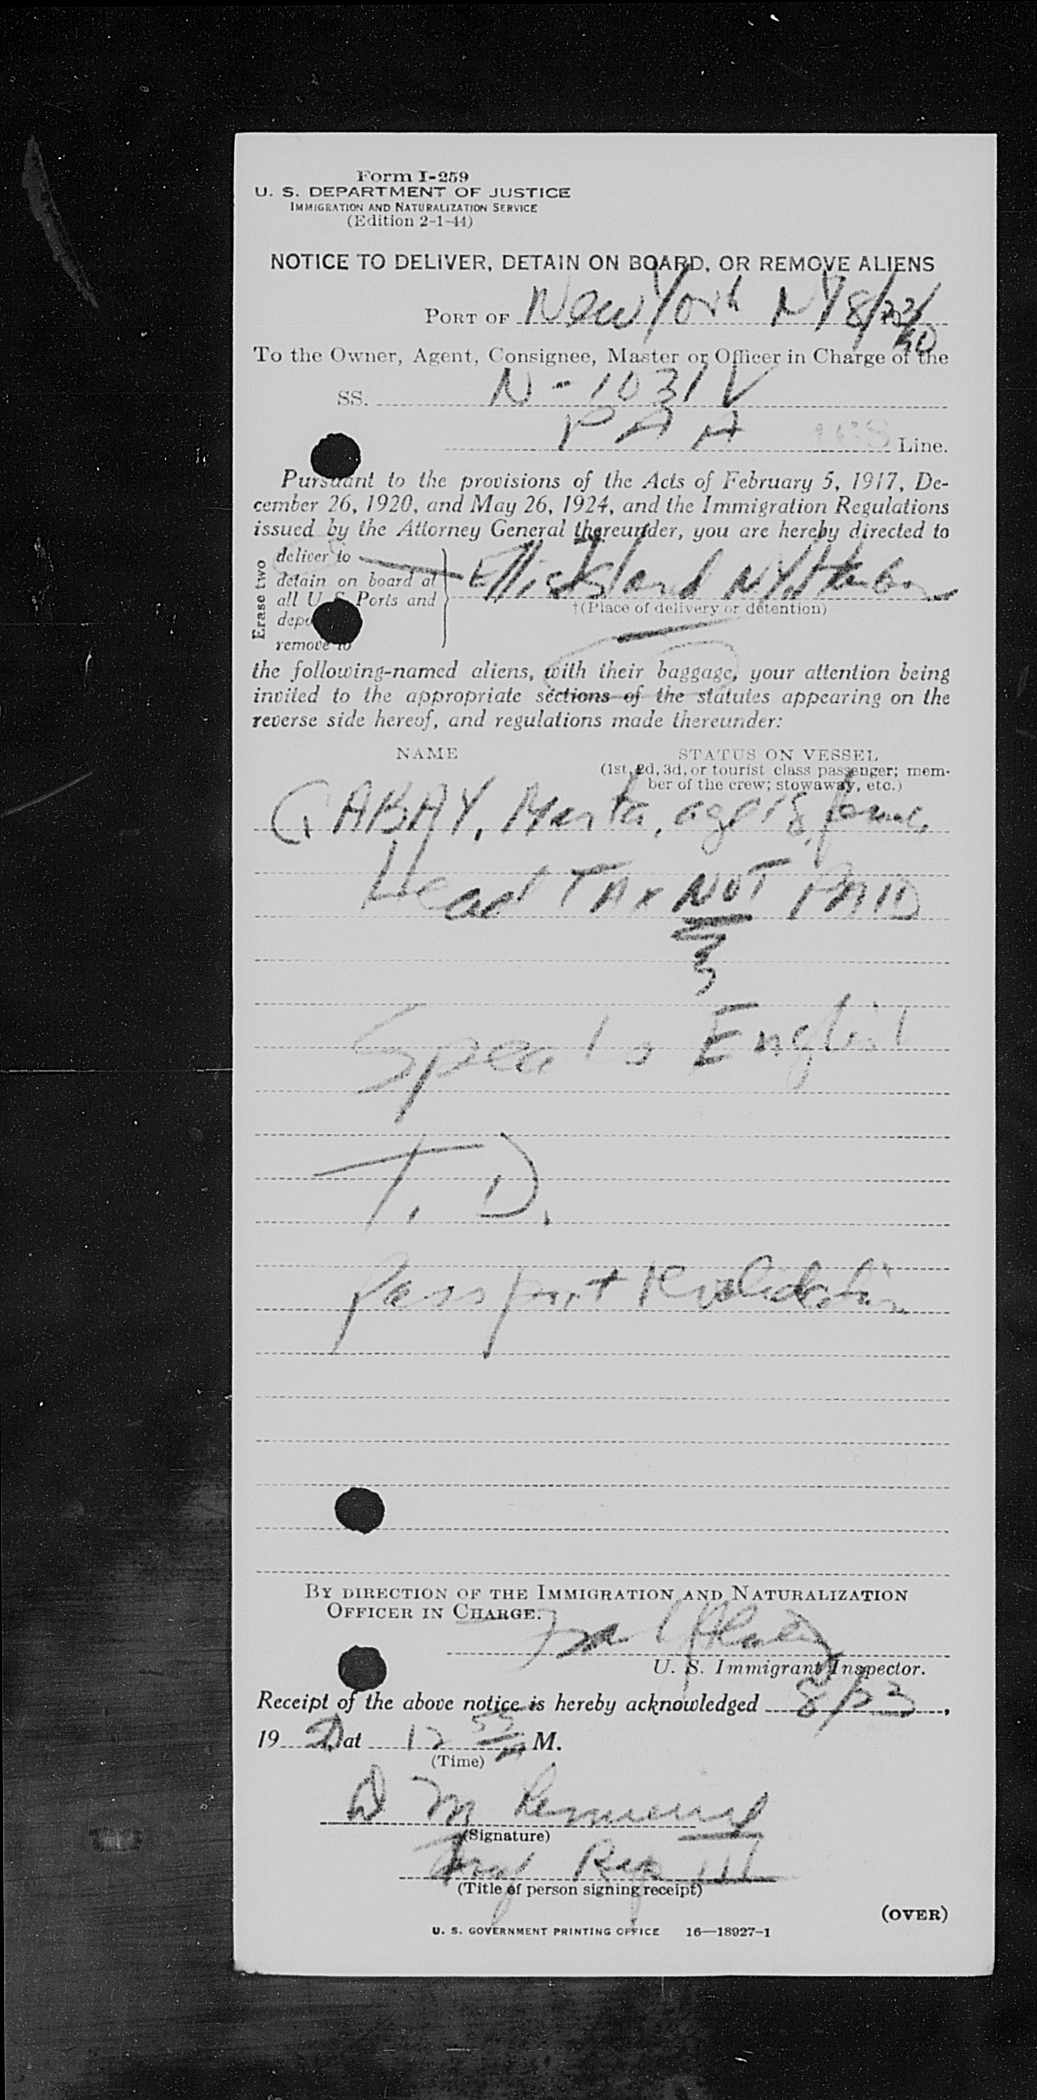 Form I-259
U. S. DEPARTMENT OF JUSTICE
IMMIGRATION AND NATURALIZATION SERVICE
(Edition 2-1-44)
NOTICE TO DELIVER, DETAIN ON BOARD, OR REMOVE ALIENS
PORT OF New York NY 8/23/50
To the Owner, Agent, Consignee, Master or Officer in Charge of the
SS. N-1031V
PAA Line.
Pursuant to the provisions of the Acts of February 5, 1917, De-
cember 26, 1920, and May 26, 1924, and the Immigration Regulations
issued by the Attorney General thereunder, you are hereby directed to
Erase two
deliver to
detain on board at
all U. S. Ports and
remove to
Ellis Island NY Harbor
†(Place of delivery or detention)
the following-named aliens, with their baggage, your attention being
invited to the appropriate sections of the statutes appearing on the
reverse side hereof, and regulations made thereunder:
NAME STATUS ON VESSEL
(1st, 2d, 3d, or tourist class passenger; mem-
ber of the crew; stowaway, etc.)
GABAY, Marta, age 18, female
Head TAX NOT PAID
Speaks English
T. D.
passport Revalidation
BY DIRECTION OF THE IMMIGRATION AND NATURALIZATION
OFFICER IN CHARGE:
U. S. Immigrant Inspector.
Receipt of the above notice is hereby acknowledged 8/23,
19 at 12 M.
(Time)
D M
(Signature)
Rep III
(Title of person signing receipt)
(OVER)
U. S. GOVERNMENT PRINTING OFFICE 16—18927-1